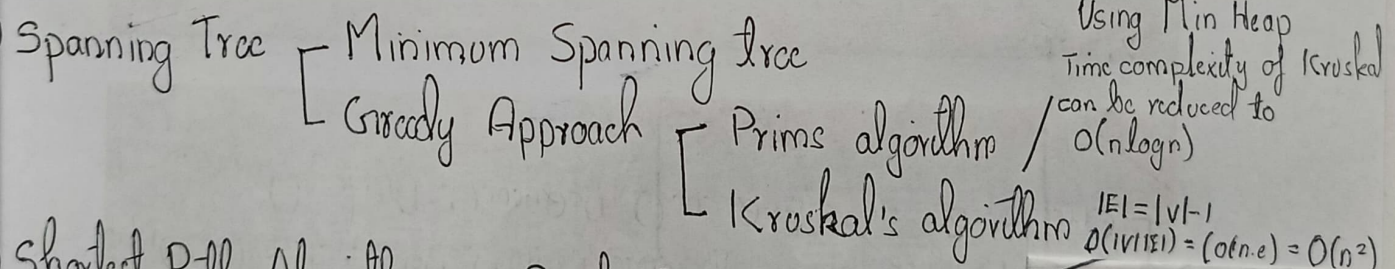 Spanning Tree
Minimum Spanning tree
Greedy Approach
Prims algorithm /
Kruskal's algorithm
Using Min Heap
Time complexity of Kruskal
can be reduced to
O(nlogn)
|E|=|V|-1
O(|V||E|) = (O(n.e) = O(n²)
Shortest